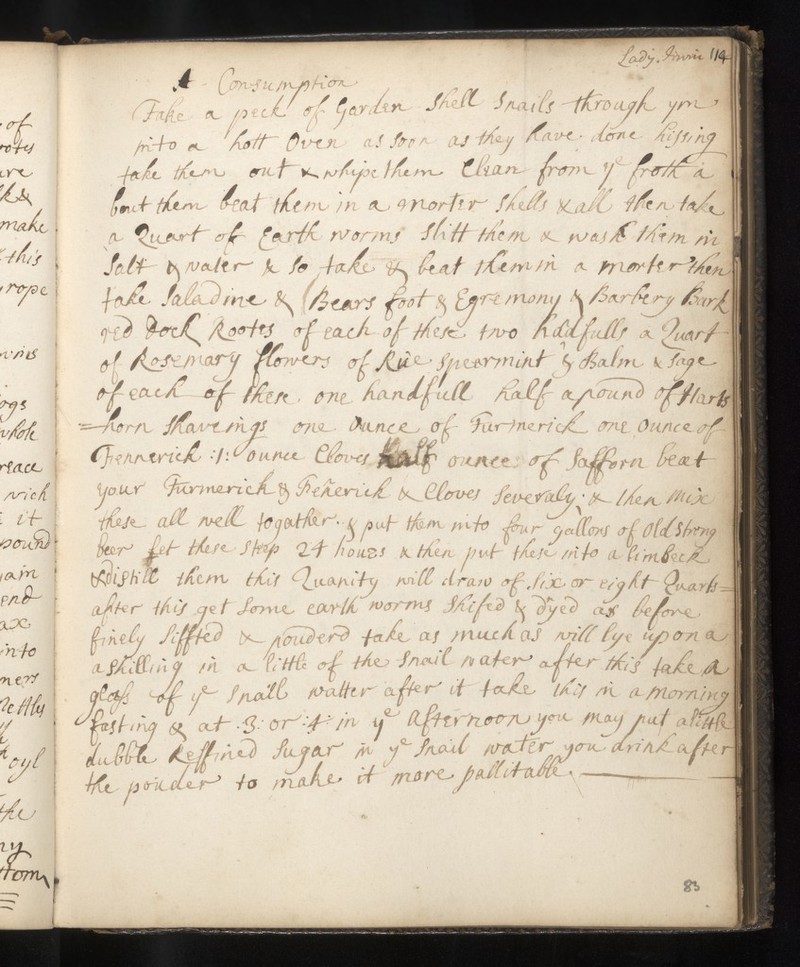 Lady Irwin 114
A Consumption
Take a peck of Garden Shell Snails through ym
into a hott Oven as soon as they have done hissing
take them out & whipe them Clean from ye froth a
bout them beat them in a morter Shells & all then take
a Quart of Earth worms Slitt them & wash them in
Salt & water & so take & beat them in a morter then
take Saladine & Bears foot & Egremony & Barbery Bark
red Dock Rootes of each of these two hādfulls a Quart
of Rosemary flowers of Rue spearmint & Balm & Sage
of each of these one handfull half a pound of Harts
=horn Shaveings one Ounce of Turmerick one ounce of
Fennerick :1: ounce Cloves half ounce of Safforn beat
your Turmerick & Fenerick & Cloves Severaly: & then mix
these all well togather & put them into four gallons of Old Strong
beer Let these Steep 24 houers & then put these into a limbeck
& distill them this Quanity will draw of six or eight Quarts=
after this get Some earth worms Shifed & dyed as before
finely Siffted & pouderd take as much as will lye upon a
a Shilling in a little of the Snail water after this take a
glass of ye Snaill watter after it take this in a morning
fasting & at :3: or :4: in ye Afternoon you may put a little
dubble Reffined Sugar in ye Snail water you drink after
the pouder to make it more pallitable.
83
of
rotes
are
k &
make
& this
rope
ogs
whole
reace
it
pound
end
into
Nettles
oyl
the
ny